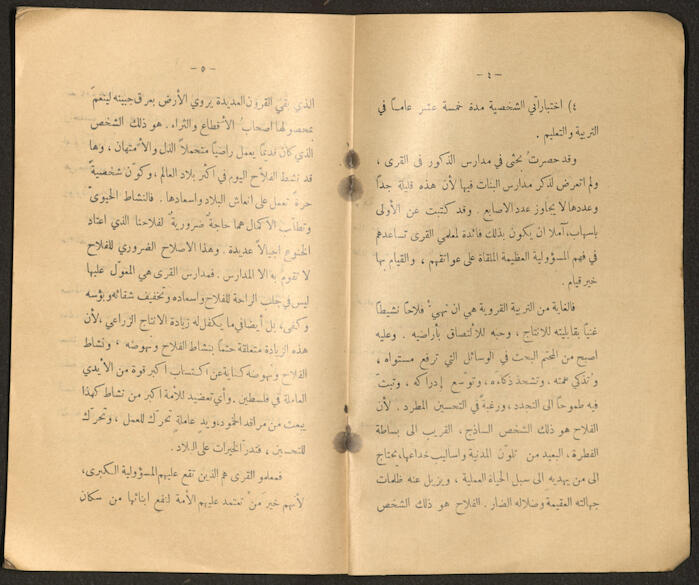 - ٤ -
٤) اختباراتي الشخصية مدة خمسة عشر عاماً في
التربية والتعليم .
وقد حصرتُ بحثي في مدارس الذكور في القرى ،
ولم اتعرض لذكر مدارس البنات فيها لأن هذه قليلة جداً
وعددها لا يجاوز عدد الاصابع . وقد كتبت عن الأولى
باسهاب، آملا ان يكون بذلك فائدة لمعلمي القرى تساعدهم
في فهم المسؤولية العظيمة الملقاة على عواتقهم ، والقيام بها
خير قيام .
فالغاية من التربية القروية هي ان نهيءْ فلاحاً نشيطاً
غنياً بقابليته للانتاج ، وحبه للالتصاق بأراضيه . وعليه
اصبح من المحتم البحث في الوسائل التي ترفع مستواه ،
وتُذكي همته ، وتشحذ ذكاءَه ، وتوسّع إدراكه ، وتبثّ
فيه طموحاً الى التجدد ، ورغبةً في التحسين المطرد . لأن
الفلاح هو ذلك الشخص الساذج ، القريب الى بساطة
الفطرة ، البعيد من تلوّن المدنية واساليب خداعها، يحتاج
الى من يهديه الى سبل الحياة العملية ، ويزيل عنه ظلمات
جهالته العقيمة وضلاله الضار . الفلاح هو ذلك الشخص
- ٥ -
الذي بقي القرون العديدة يروي الأرض بعرق جبينه لينعمَ
بمحصولها اصحابُ الأقطاع والثراء . هو ذلك الشخص
الذي كان قديماً يعمل راضياً متحملاً الذل والأمتهان ، وها
قد نشط الفلاح اليوم في اكثر بلاد العالم ، وكوّن شخصيةً
حرةً تعمل على انعاش البلاد واسعادها . فالنشاط الحيويّ
وتطلّب الأكمال هما حاجةٌ ضروريةٌ لفلاحنا الذي اعتاد
الخنوع اجيالاً عديدة . وهذا الاصلاح الضروري للفلاح
لا تقوم به الا المدارس . فمدارس القرى هي المعوّل عليها
ليس في جلب الراحة للفلاح واسعاده وتخفيف شقائه وبؤسه
وكفى، بل أيضاً في ما يكفل له زيادة الانتاج الزراعي ، لأن
هذه الزيادة متعلقة حتماً بنشاط الفلاح ونهوضه ، ونشاط
الفلاح ونهوضه كناية عن اكتساب اكبر قوة من الأيدي
العاملة في فلسطين . وأي تعضيد للأمة اكبر من نشاط كهذا
يبعث من مراقد الخمود ، ويدٍ عاملةٍ تحرّك للعمل ، وتحرّك
للتحسين ، فتدرّ الخيرات على البلاد .
فمعلمو القرى هم الذين تقع عليهم المسؤولية الكبرى،
لأنهم خيرَ منْ تعتمد عليهم الأمة لنفع ابنائها من سكان